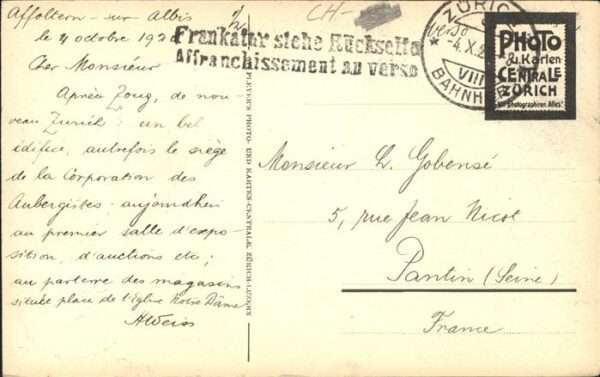 Affoltern-sur-Albis
le 4 octobre 192
Cher Monsieur
Après Zoug, de nou-
veau Zurich: un bel
édifice, autrefois le siège
de la Corporation des
Aubergistes - aujourdhui
au premier salle d'expo-
sition, d'auctions etc;
au parterre des magasins
située place de l'Eglise Notre Dame
AWeiss
CH-
Frankatur siehe Rückseite
Affranchissement au verso
PLEYER'S PHOTO- UND KARTEN-CENTRALE ZÜRICH-
ZÜRICH
verso
-4.X.2
VIII
BAHNH
PHOTO
u. Karten
CENTRALE
ZÜRICH
Wir photographieren Alles!
Monsieur L. Gobensé
5, rue Jean Nicot
Pantin (Seine)
France